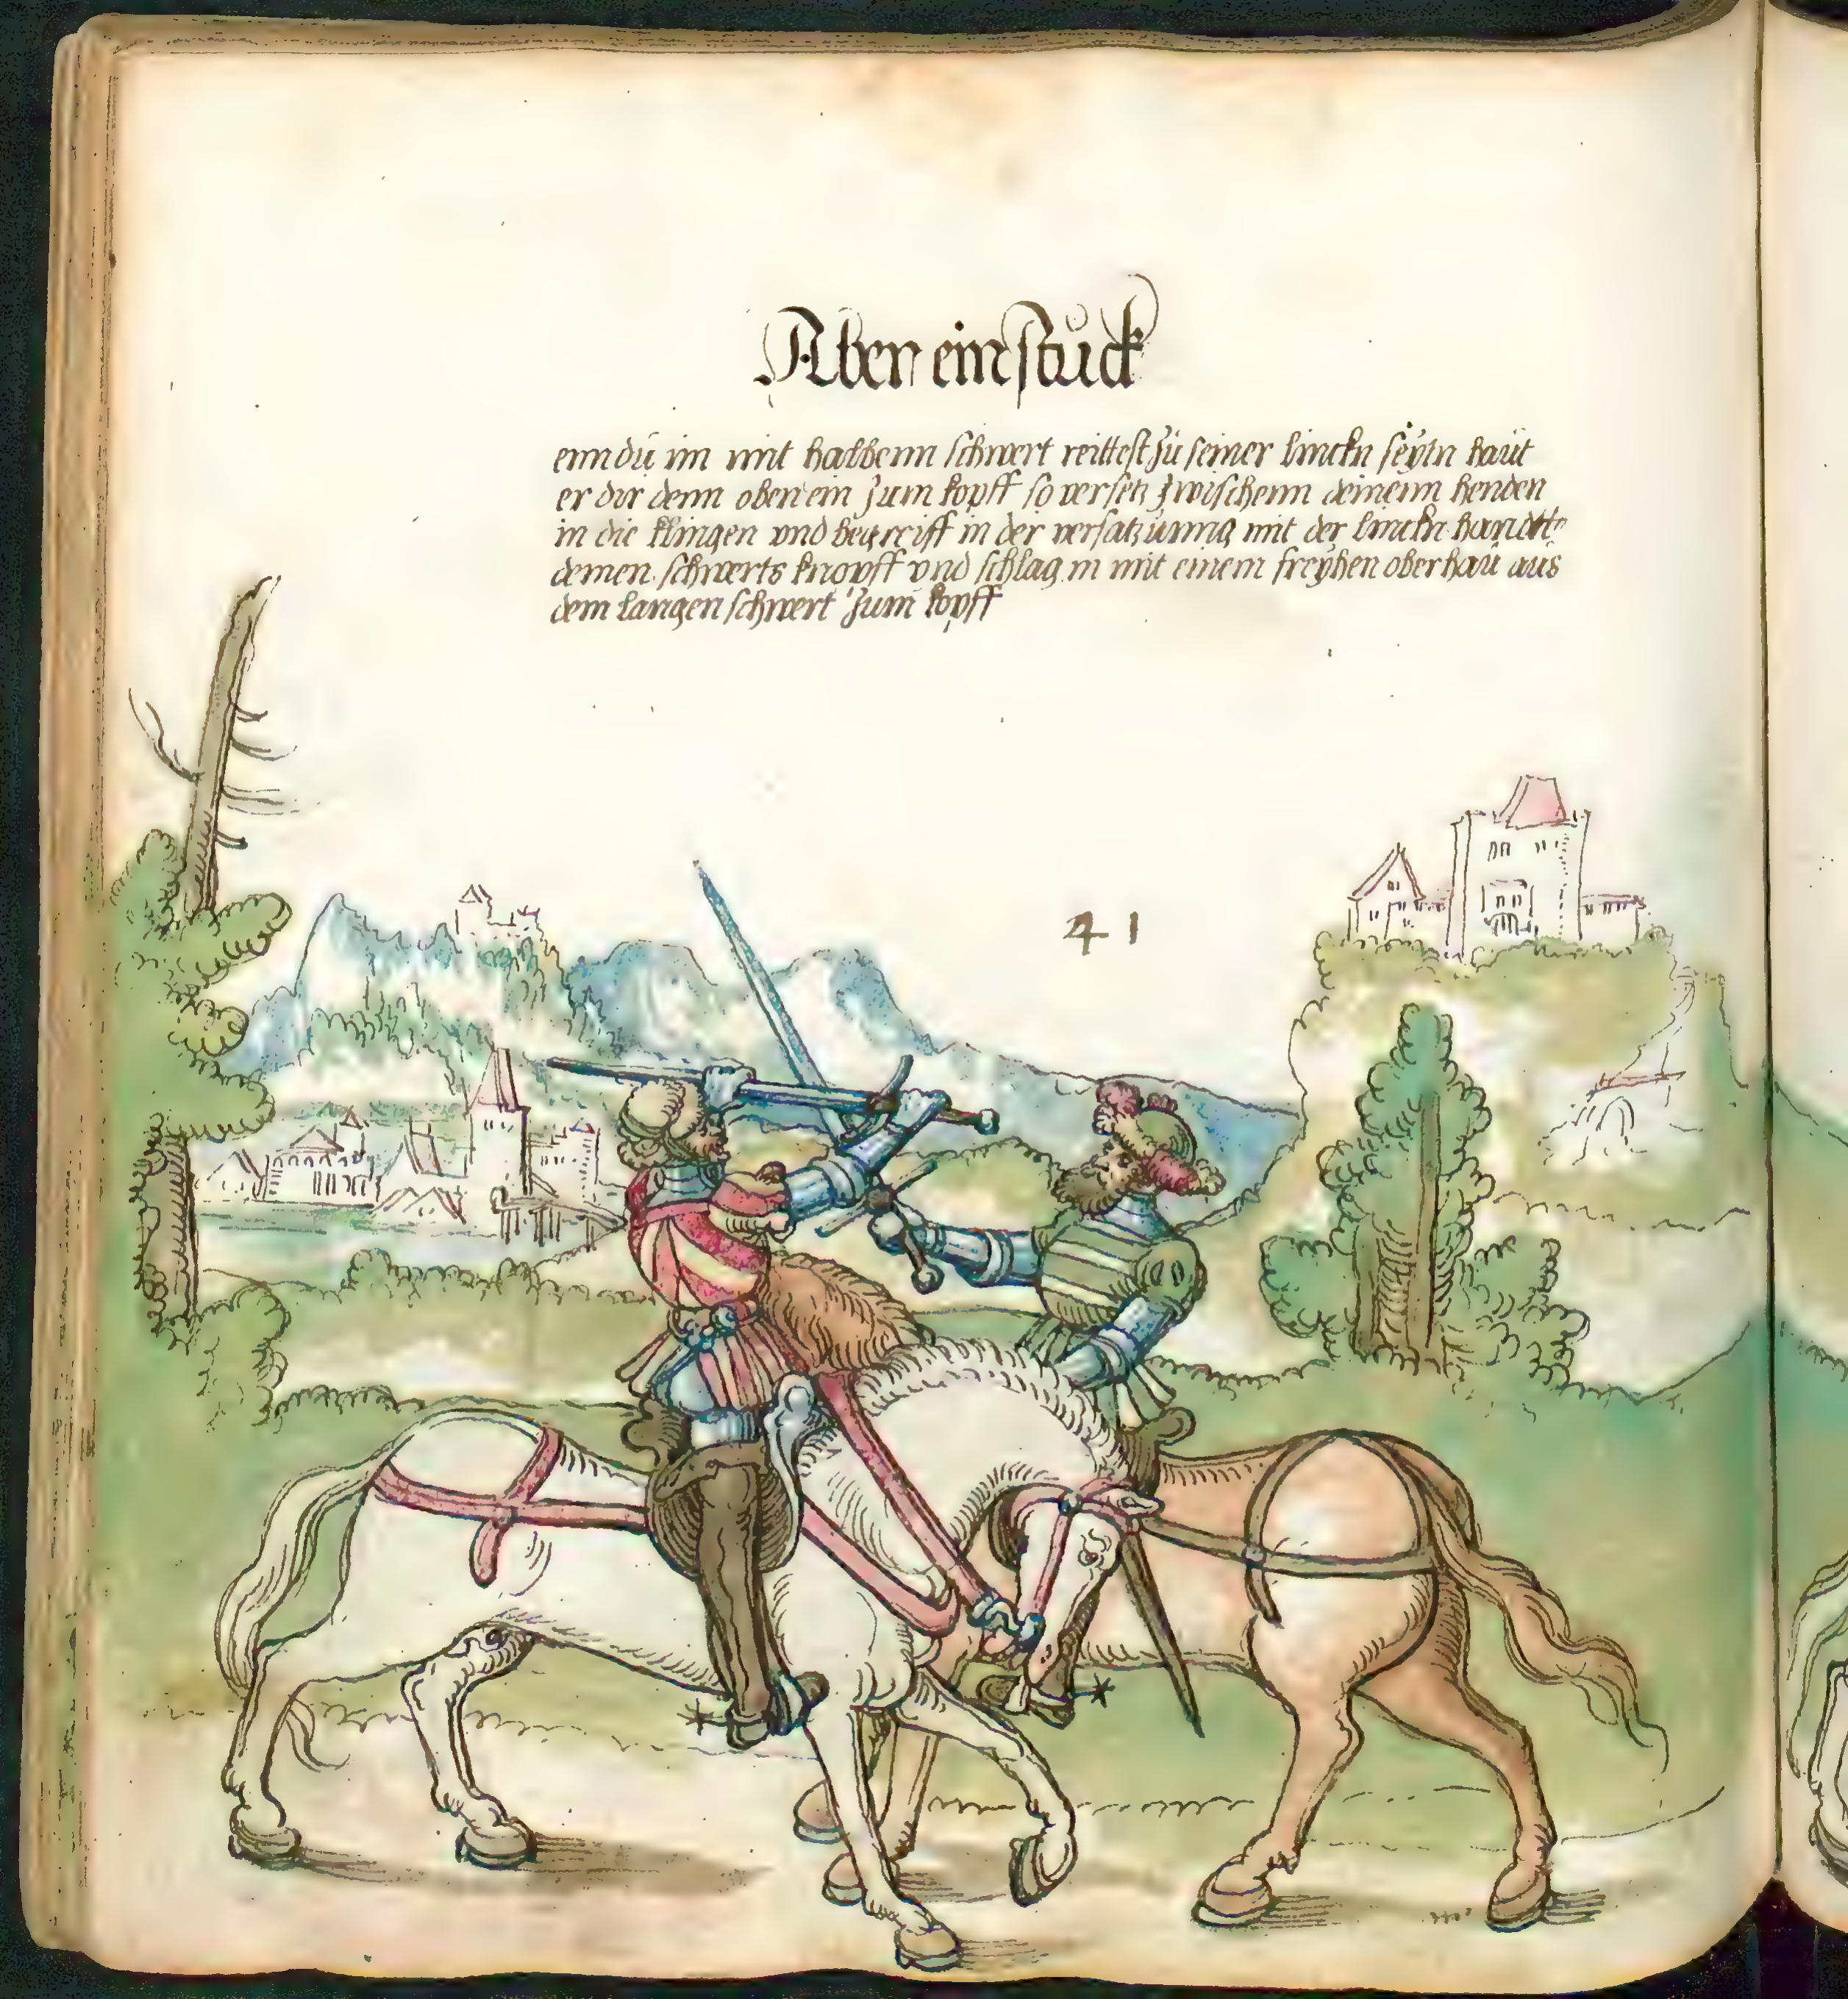 Aber ein stuck
enn du im mit halbenn schwert reittest zu seiner linckn seytn haut
er dir denn oben ein zum kopff so versetz zwischenn deinenn henden
in die klingen vnd begreiff in der versatzunng mit der linckn handt
deinen schwerts knopff vnd schlag in mit einem freyhen oberhau aus
dem langen schwert zum kopff
41